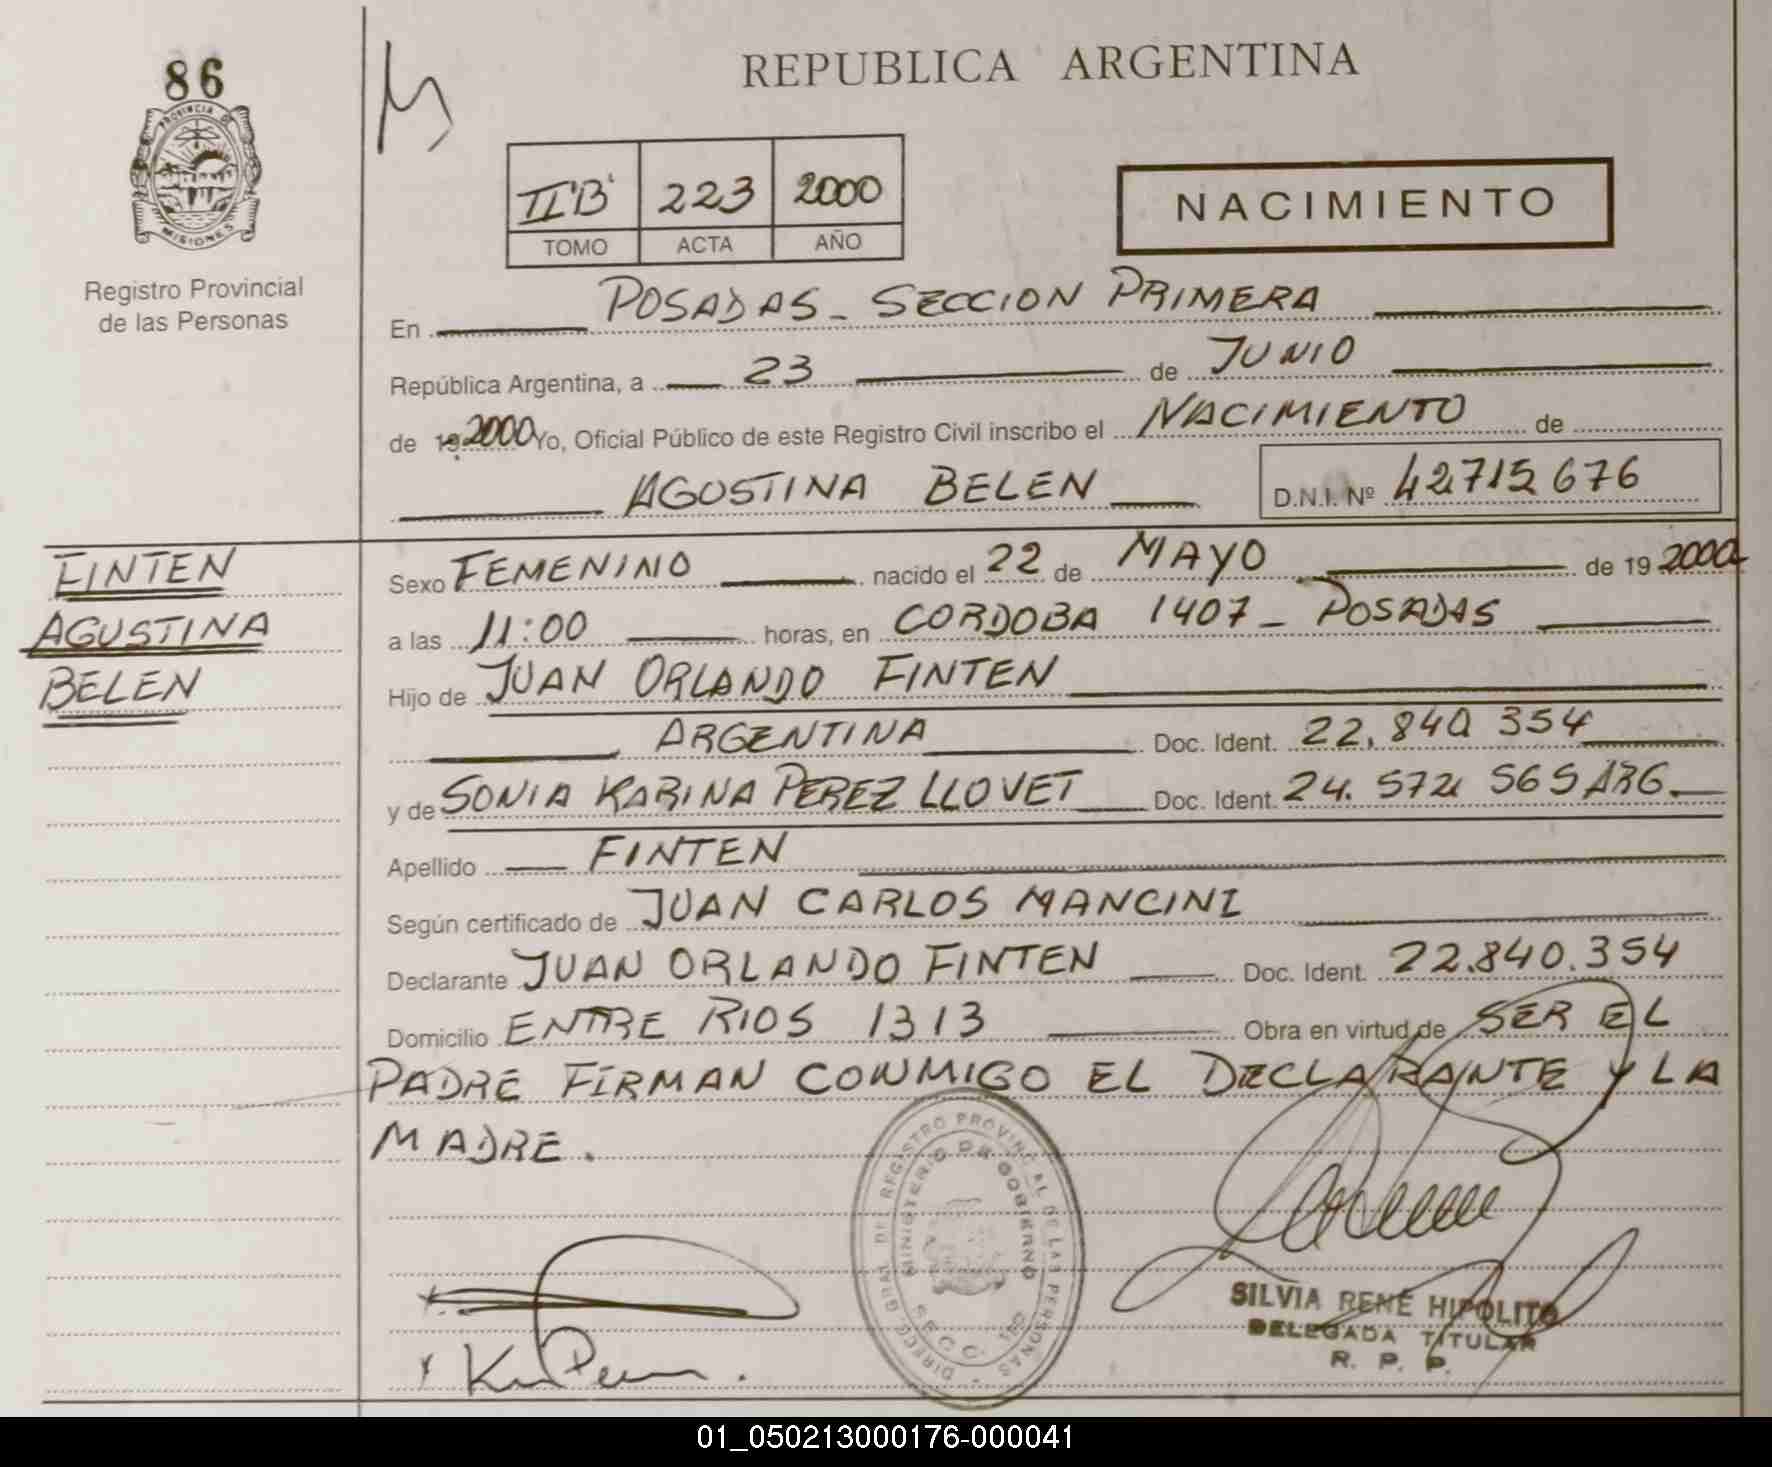 86
PROVINCIA DE
MISIONES
Registro Provincial
de las Personas
REPUBLICA ARGENTINA
II'B' 223 2000
TOMO ACTA AÑO
NACIMIENTO
En POSADAS - SECCION PRIMERA
República Argentina, a 23 de JUNIO
de 19 2000 Yo, Oficial Público de este Registro Civil inscribo el NACIMIENTO de
AGOSTINA BELEN D.N.I. Nº 42715676
FINTEN
AGUSTINA
BELEN
Sexo FEMENINO nacido el 22 de MAYO de 19 2000
a las 11:00 horas, en CORDOBA 1407 - POSADAS
Hijo de JUAN ORLANDO FINTEN
ARGENTINA Doc. Ident. 22.840 354
y de SONIA KARINA PEREZ LLOVET Doc. Ident. 24. 572 565 ARG.
Apellido FINTEN
Según certificado de JUAN CARLOS MANCINI
Declarante JUAN ORLANDO FINTEN Doc. Ident. 22.840.354
Domicilio ENTRE RIOS 1313 Obra en virtud de SER EL
PADRE FIRMAN CONMIGO EL DECLARANTE Y LA
MADRE.
DIRECC. GRAL. DEL REGISTRO PROVINCIAL DE LAS PERSONAS
MINISTERIO DE GOBIERNO
SECC. 1RA
SILVIA RENÉ HIPOLITO
DELEGADA TITULAR
R. P. P.
01_050213000176-000041